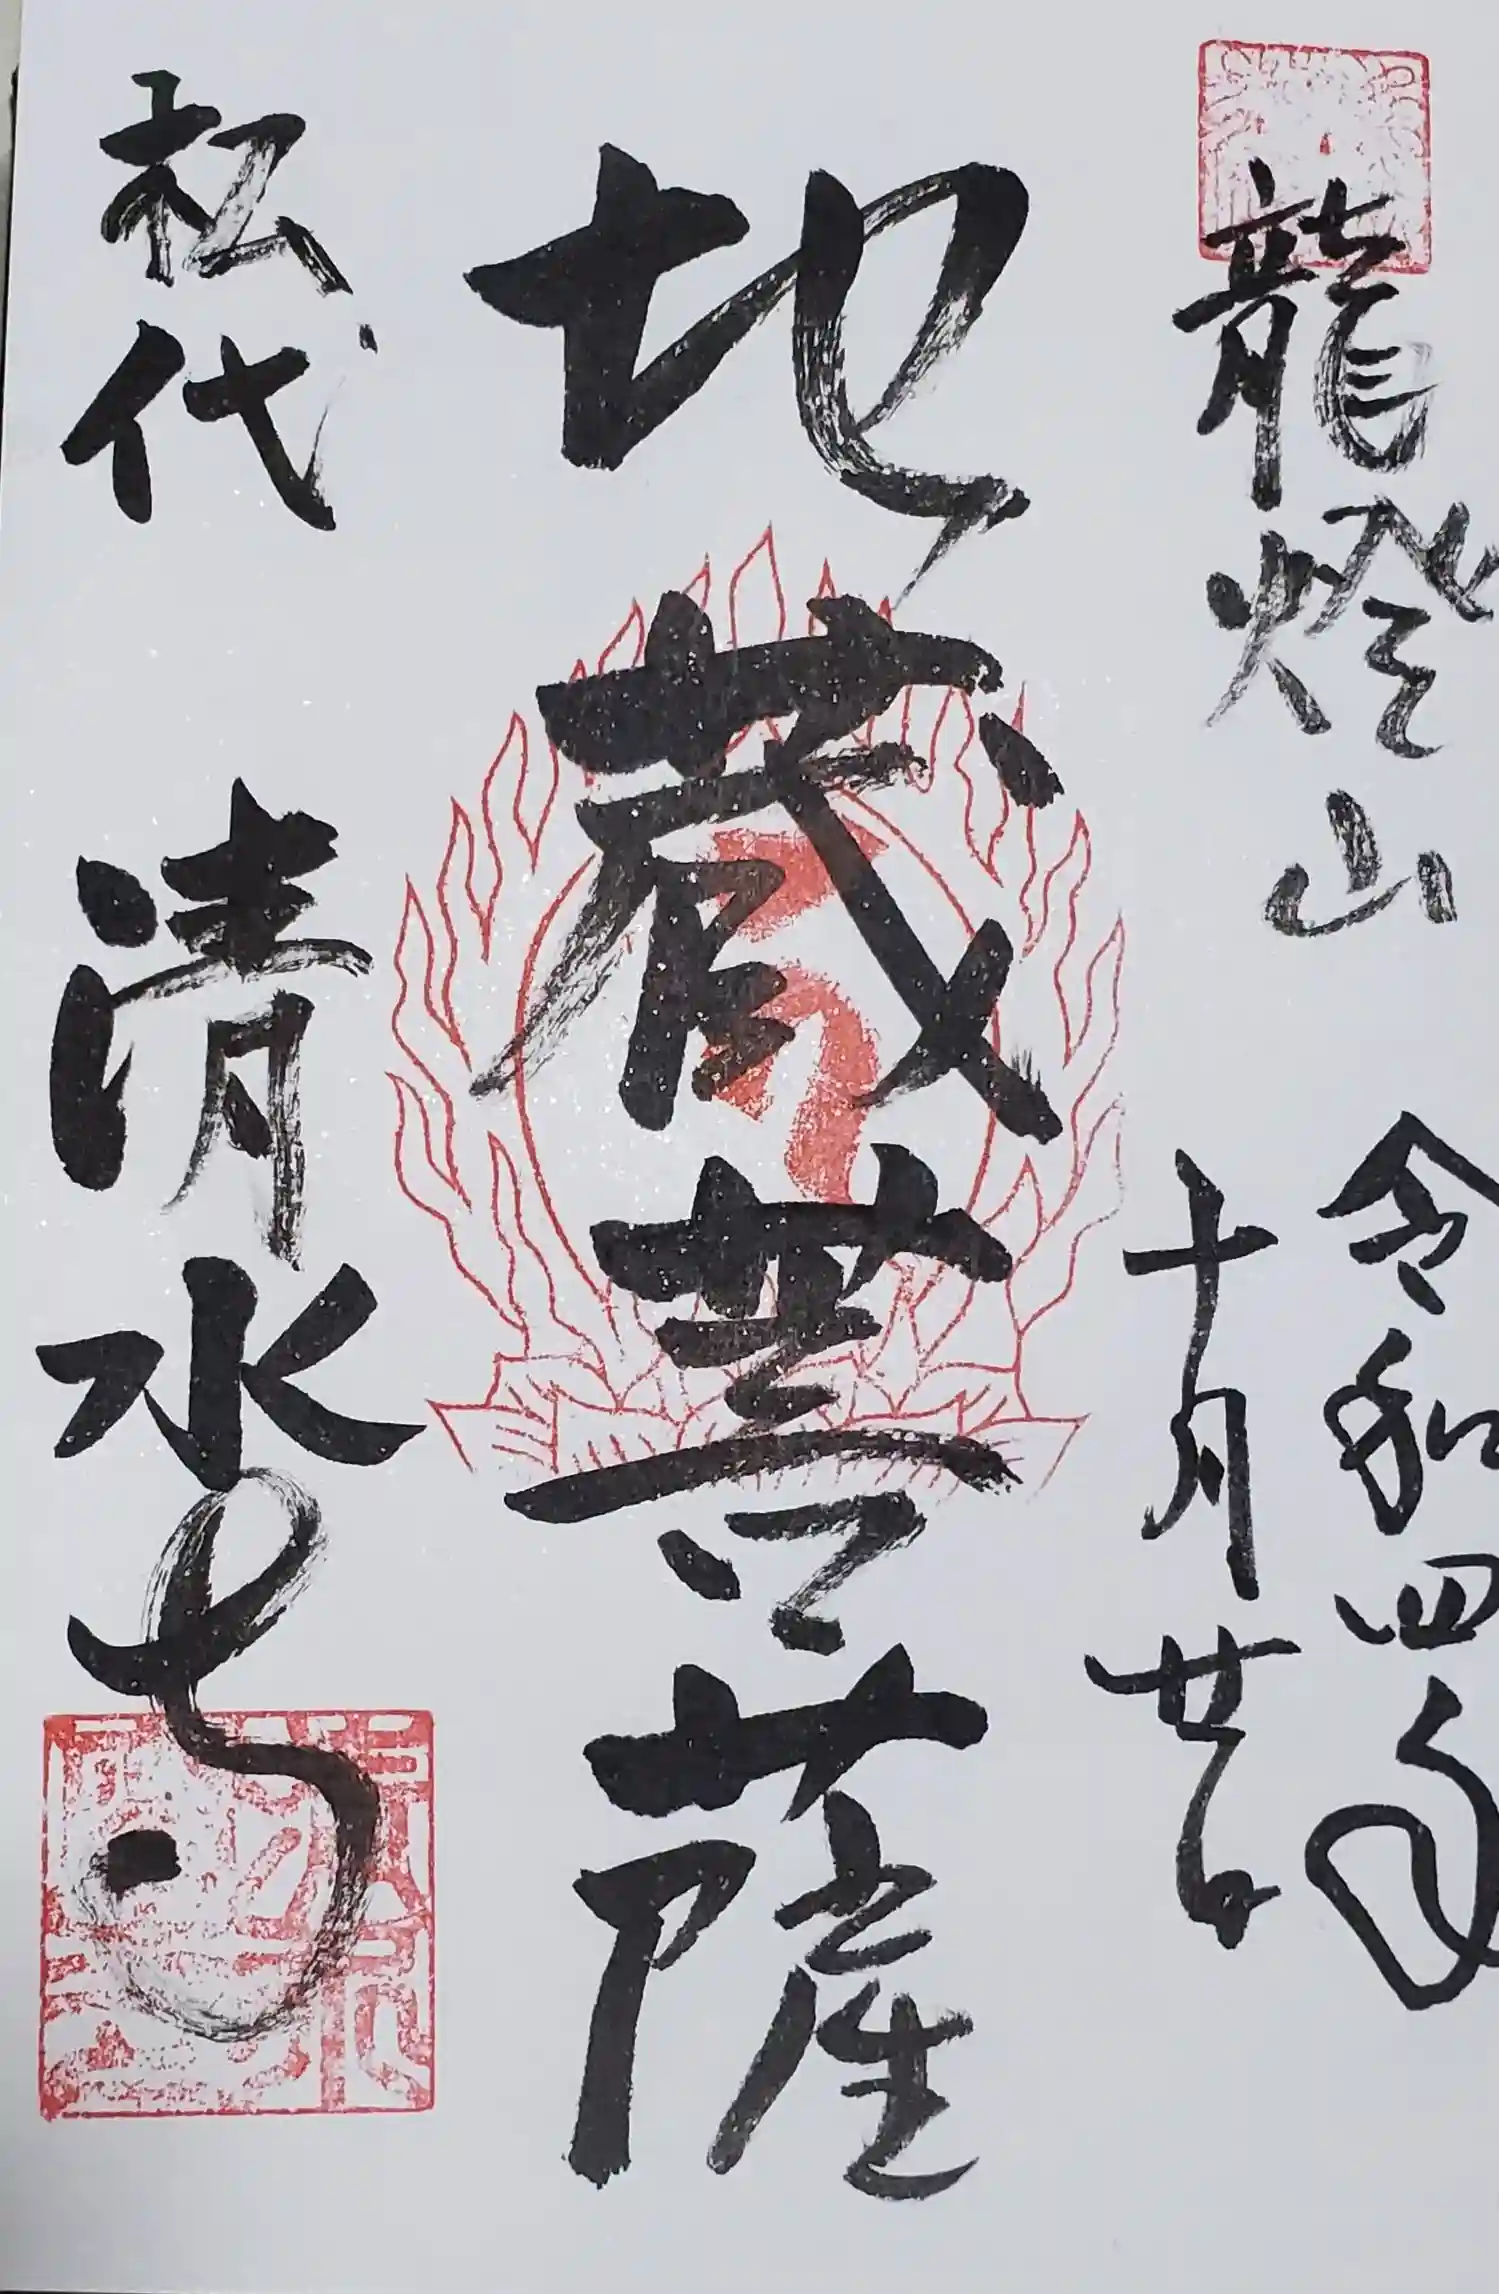 龍燈山
令和四年
十月廿日
地蔵菩薩
松代 清水寺